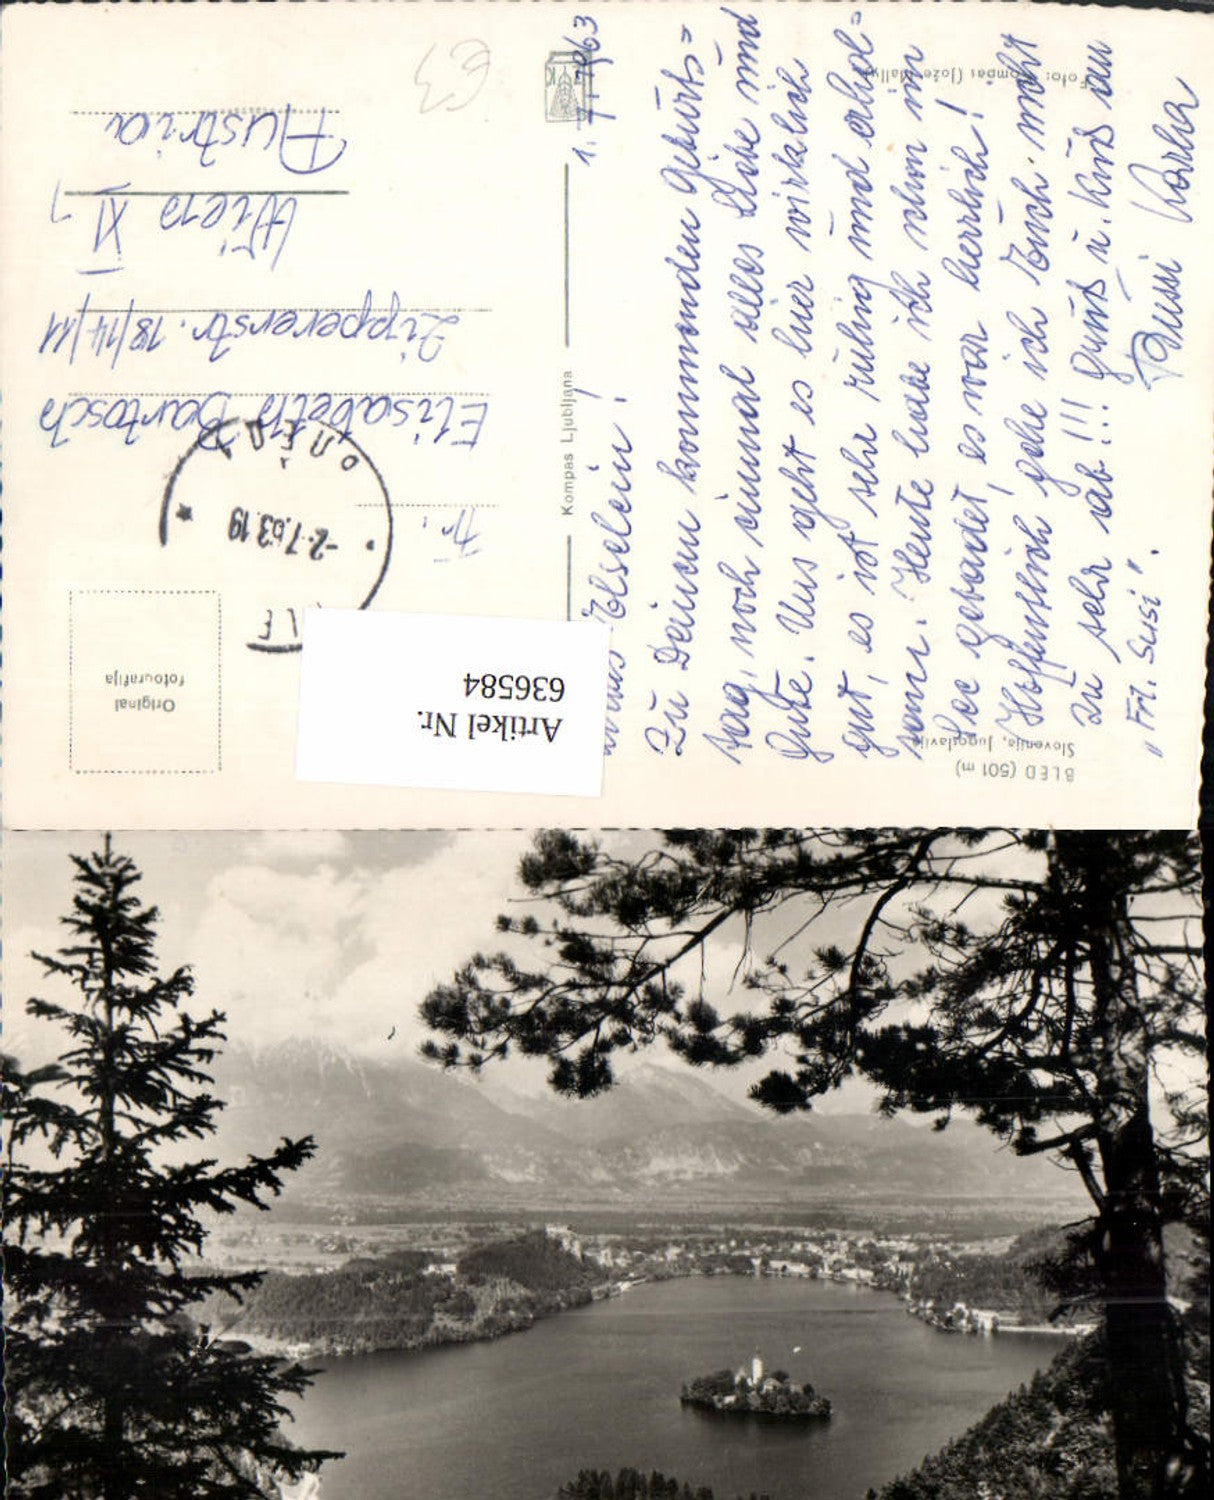 1. 7. 1963
Elselein!
Zu Deinem kommenden Geburts=
tag, noch einmal alles Liebe und
Gute. Uns geht es hier wirklich
gut, es ist sehr ruhig und erhol=
sam. Heute habe ich schon im
See gebadet, es war herrlich!
Hoffentlich gehe ich Euch nicht
zu sehr ab!!! Gruß u. Kuß an
"Frl. Susi".
Bussi Karla
Frl.
Elisabeth Bartosch
Zippererstr. 18/14/11
Wien XI
Austria
BLED (501 m)
Slovenija, Jugoslavija
Foto: Kompas (Jože Mally)
Kompas Ljubljana
Original
fotografija
-2.7.63.19
Artikel Nr.
636584